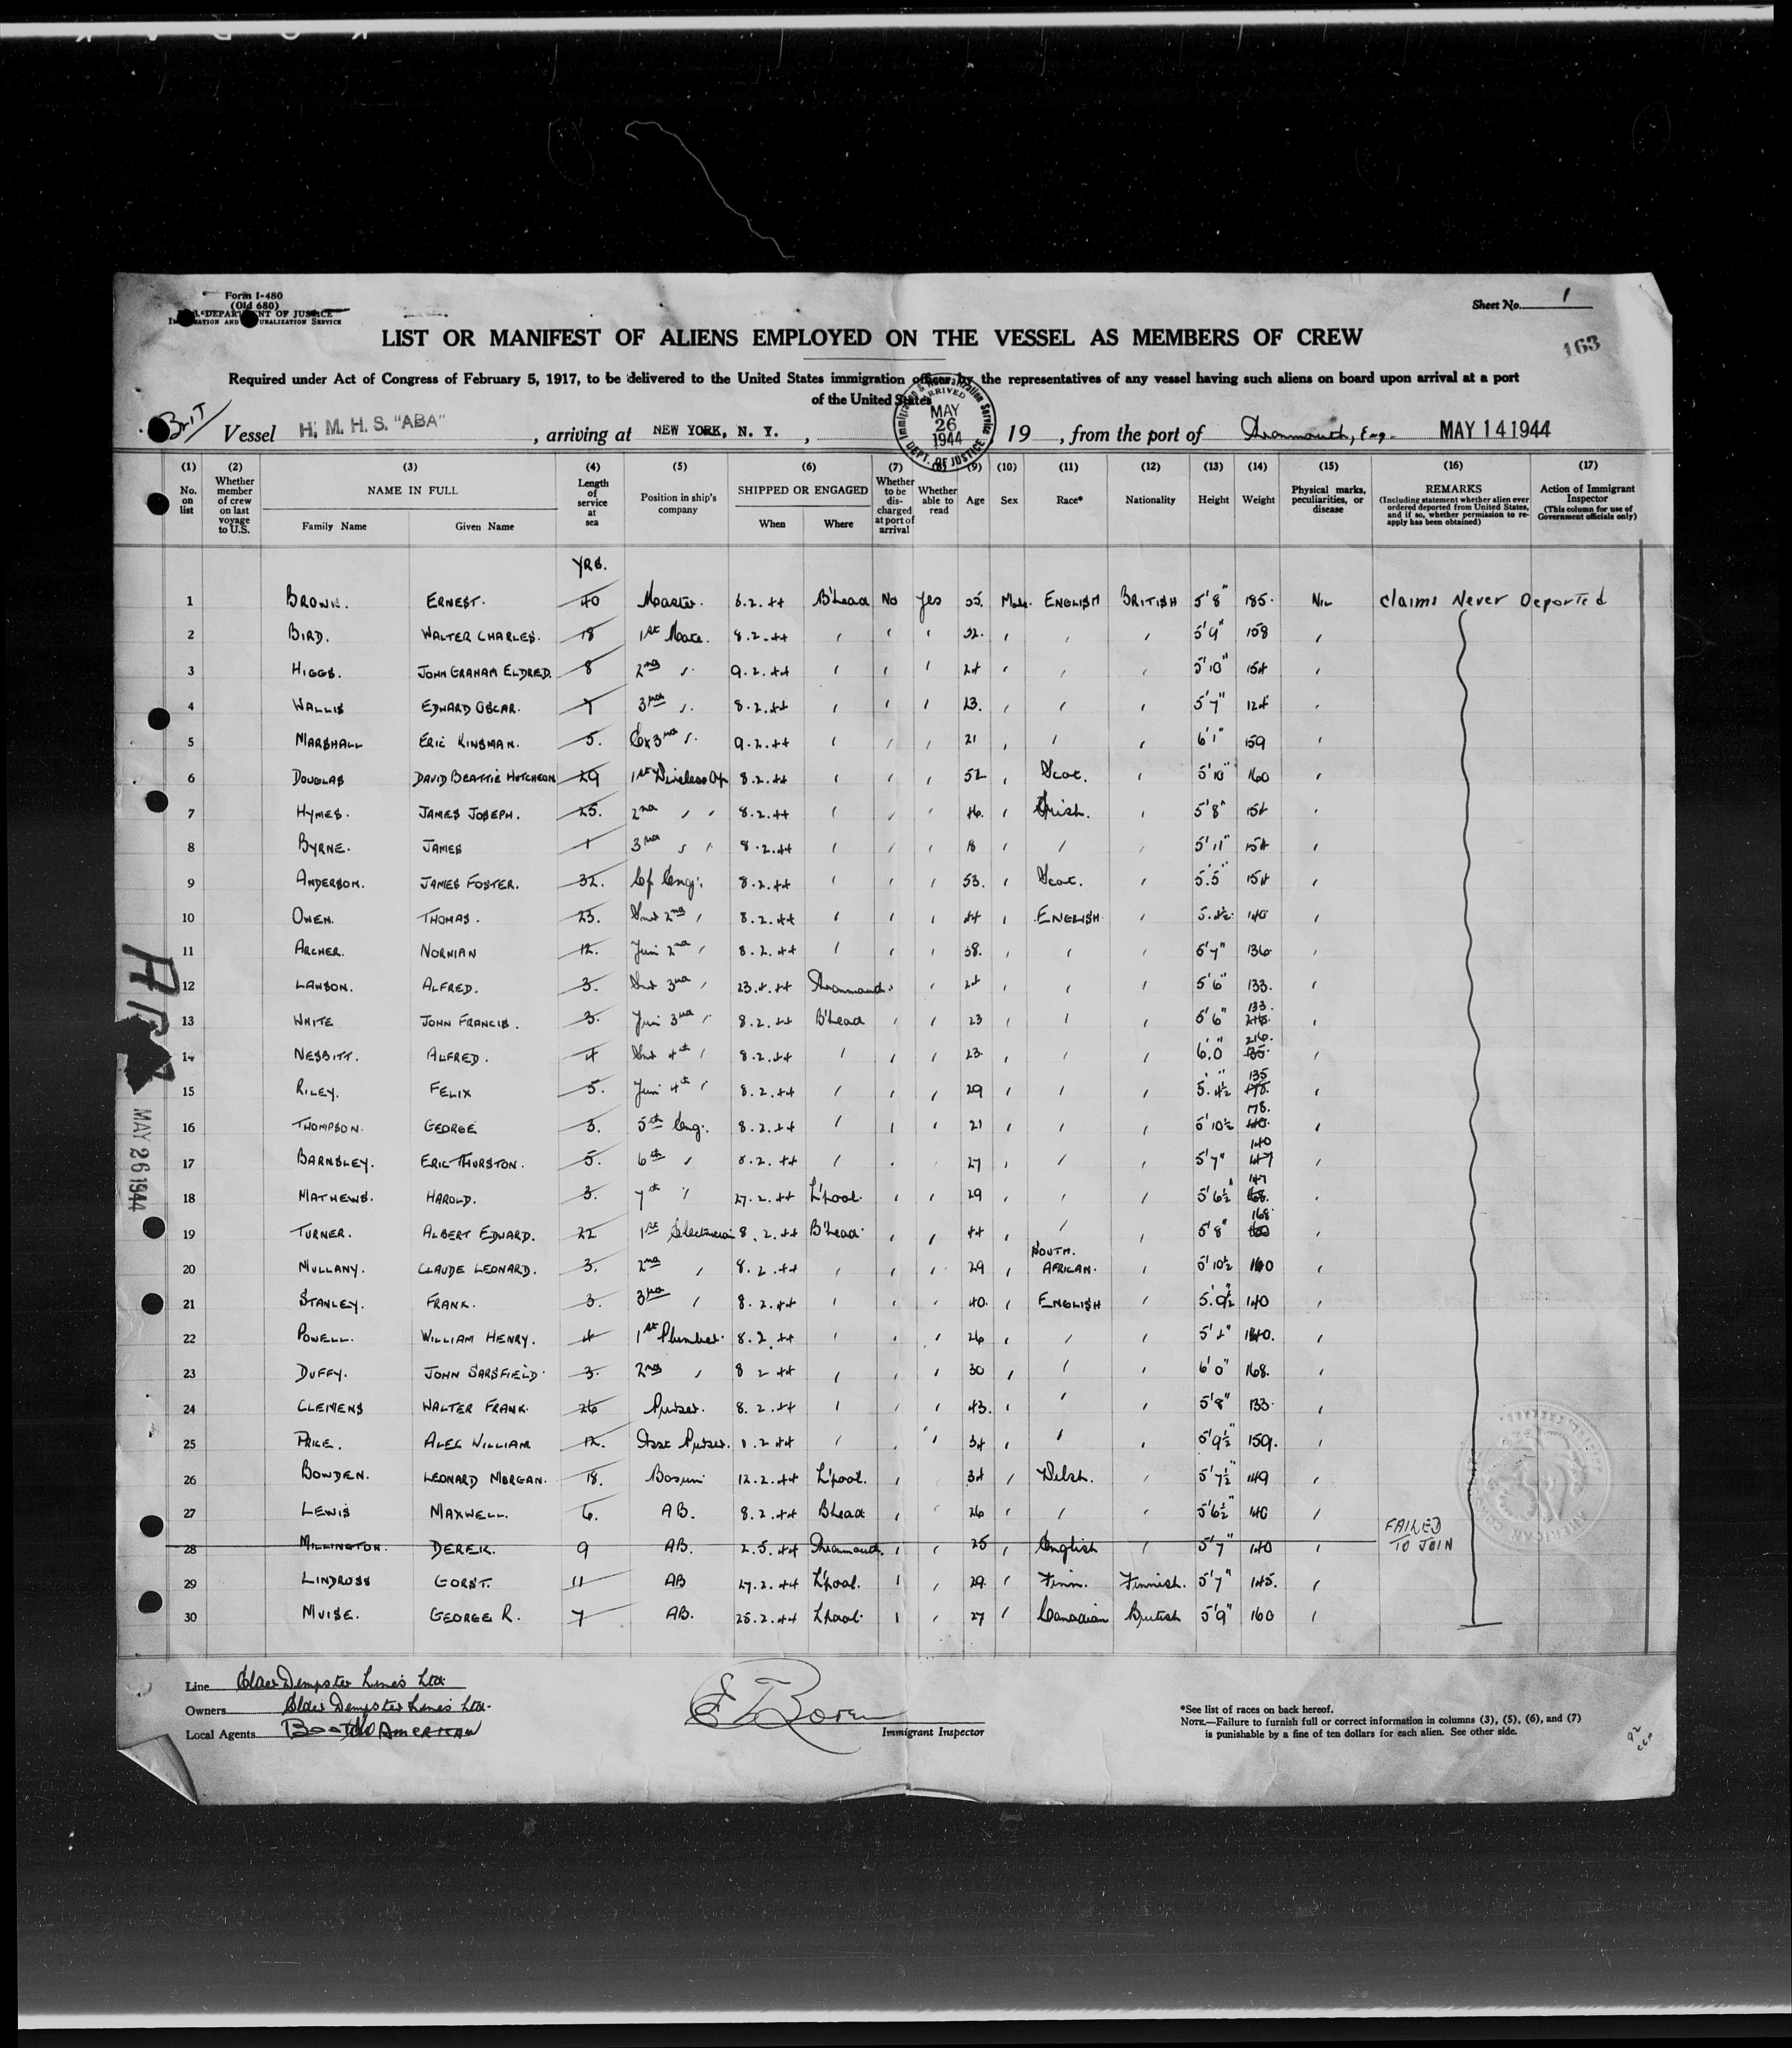 Form I-480
(Old 680)
U.S. DEPARTMENT OF JUSTICE
IMMIGRATION AND NATURALIZATION SERVICE
Sheet No. 1
163
LIST OR MANIFEST OF ALIENS EMPLOYED ON THE VESSEL AS MEMBERS OF CREW
Required under Act of Congress of February 5, 1917, to be delivered to the United States immigration officer by the representatives of any vessel having such aliens on board upon arrival at a port
of the United States
Brit/ Vessel H. M. H. S. "ABA", arriving at NEW YORK, N. Y., 19, from the port of Avonmouth, Eng. MAY 14 1944
Immigration & Naturalization Service ARRIVED MAY 26 1944 DEPT. OF JUSTICE
(1) No. on list (2) Whether member of crew on last voyage to U.S. (3) NAME IN FULL Family Name Given Name (4) Length of service at sea (5) Position in ship's company (6) SHIPPED OR ENGAGED When Where (7) Whether to be discharged at port of arrival (8) Whether able to read (9) Age (10) Sex (11) Race* (12) Nationality (13) Height (14) Weight (15) Physical marks, peculiarities, or disease (16) REMARKS (Including statement whether alien ever ordered deported from United States, and if so, whether permission to reapply has been obtained) (17) Action of Immigrant Inspector (This column for use of Government officials only)
YRS.
1 BROWN. ERNEST. 40 Master. 6.2.44 B'head No Yes 55. Male. ENGLISH BRITISH 5'8" 185. NIL claims Never Deported
2 BIRD. WALTER CHARLES. 18 1st Mate. 8.2.44 " " " 32. " " " 5'9" 158 "
3 HIGGS. JOHN GRAHAM ELDRED. 8 2nd " 9.2.44 " " " 24 " " " 5'10" 154 "
4 WALLIS EDWARD OSCAR. 7 3rd " 8.2.44 " " " 23. " " " 5'7" 124 "
5 MARSHALL ERIC KINSMAN. 5. Ex 3rd " 9.2.44 " " " 21 " " " 6'1" 159 "
6 DOUGLAS DAVID BEATTIE HUTCHEON 29 1st Wireless Op 8.2.44 " " " 52 " Scot. " 5'10" 160 "
7 HYMES. JAMES JOSEPH. 25. 2nd " " 8.2.44 " " " 46. " Irish. " 5'8" 154 "
8 BYRNE. JAMES 1 3rd " " 8.2.44 " " " 18 " " " 5'11" 154 "
9 ANDERSON. JAMES FOSTER. 32. Cf Eng. 8.2.44 " " " 53. " Scot. " 5.5" 154 "
10 OWEN. THOMAS. 23. Snr 2nd " 8.2.44 " " " 44 " ENGLISH. " 5.4½ 140 "
11 ARCHER. NORMAN 12. Jun 2nd " 8.2.44 " " " 38. " " " 5'7" 136 "
12 LAWSON. ALFRED. 3. Snr 3rd " 23.4.44 Avonmouth. " " 24 " " " 5'6" 133. "
13 WHITE JOHN FRANCIS. 3. Jun 3rd " 8.2.44 B'head " " 23 " " " 5'6" 133. 216. "
14 NESBITT. ALFRED. 4 Snr 4th " 8.2.44 " " " 23. " " " 6.0" 216. 135. "
15 RILEY. FELIX 5. Jun 4th " 8.2.44 " " " 29 " " " 5.4½ 135 178. "
16 THOMPSON. GEORGE 3. 5th Eng. 8.2.44 " " " 21 " " " 5'10½ 178. 140. "
17 BARNSLEY. ERIC THURSTON. 5. 6th " 8.2.44 " " " 27 " " " 5'7" 140 147 "
18 MATHEWS. HAROLD. 3. 7th " 27.2.44 L'pool. " " 29 " " " 5'6½" 147 168. "
19 TURNER. ALBERT EDWARD. 22 1st Electrician 8.2.44 B'head. " " 44 " " " 5'8" 168. "
20 MULLANY. CLAUDE LEONARD. 3. 2nd " 8.2.44 " " " 29 " SOUTH. AFRICAN. " 5'10½ 160 "
21 STANLEY. FRANK. 3. 3rd " 8.2.44 " " " 40. " ENGLISH " 5.9½" 140 "
22 POWELL. WILLIAM HENRY. 4 1st Plumber. 8.2.44 " " " 26 " " " 5'4" 140. "
23 DUFFY. JOHN SARSFIELD. 3. 2nd " 8 2 44 " " " 30 " " " 6'0" 168. "
24 CLEMENS WALTER FRANK. 26 Purser. 8.2.44 " " " 43. " " " 5'8" 133. "
25 PRICE. ALEC WILLIAM 12. Asst Purser. 8.2.44 " " " 34 " " " 5'9½" 159. "
26 BOWDEN. LEONARD MORGAN. 18. Bosun 12.2.44 L'pool. " " 34 " Welsh. " 5'7½" 149 "
27 LEWIS MAXWELL. 6. AB. 8.2.44 B'head " " 26 " " " 5'6½" 140 "
28 MILLINGTON. DEREK. 9 AB. 2.5.44 Avonmouth. " " 25 " English " 5'7" 140 " FAILED TO JOIN
29 LINDROSS GORST. 11 AB 27.2.44 L'pool. " " 29. " Finn. Finnish. 5'7" 145. "
30 MUISE. GEORGE R. 7 AB. 25.2.44 L'pool. " " 27 " Canadian British 5'9" 160 "
MAY 26 1944
Line Elder Dempster Lines Ltd.
Owners Elder Dempster Lines Ltd.
Local Agents Booth American
Immigrant Inspector
*See list of races on back hereof.
NOTE.—Failure to furnish full or correct information in columns (3), (5), (6), and (7)
is punishable by a fine of ten dollars for each alien. See other side.